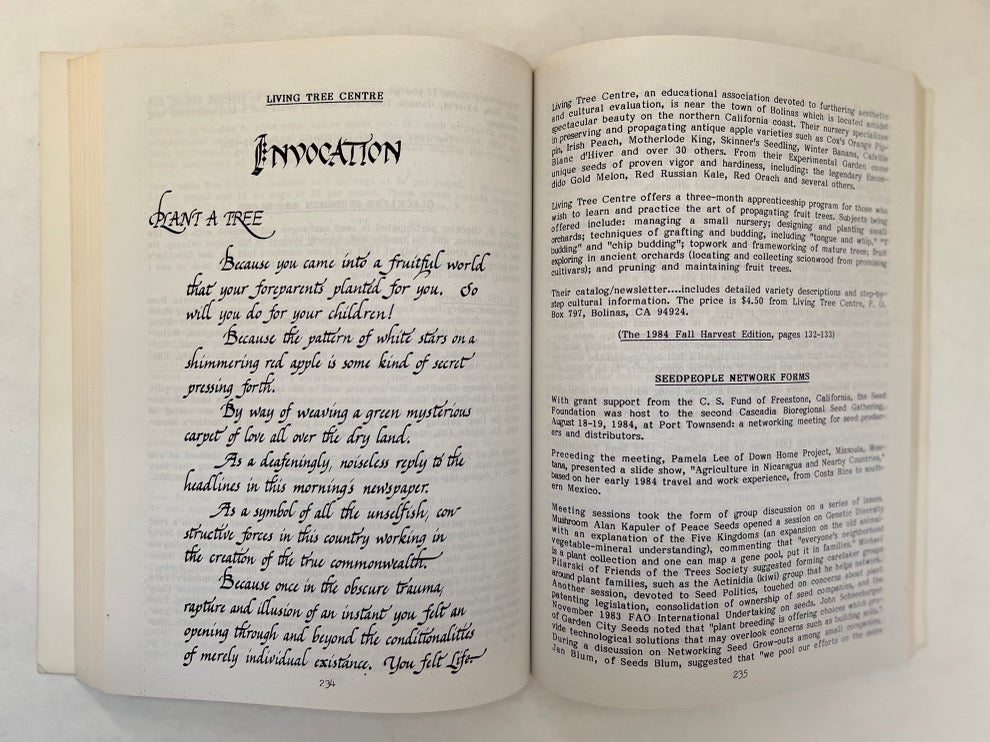 LIVING TREE CENTRE
INVOCATION
PLANT A TREE
Because you came into a fruitful world
that your foreparents planted for you. So
will you do for your children!
Because the pattern of white stars on a
shimmering red apple is some kind of secret
pressing forth.
By way of weaving a green mysterious
carpet of love all over the dry land.
As a deafeningly, noiseless reply to the
headlines in this morning's newspaper.
As a symbol of all the unselfish, con-
structive forces in this country working in
the creation of the true commonwealth.
Because once in the obscure trauma,
rapture and illusion of an instant you felt an
opening through and beyond the conditionalities
of merely individual existance. You felt Life.
234
Living Tree Centre, an educational association devoted to furthering aesthetic
and cultural evaluation, is near the town of Bolinas which is located amidst
spectacular beauty on the northern California coast. Their nursery specializes
in preserving and propagating antique apple varieties such as Cox's Orange Pip-
pin, Irish Peach, Motherlode King, Skinner's Seedling, Winter Banana, Calville
Blanc d'Hiver and over 30 others. From their Experimental Garden come
unique seeds of proven vigor and hardiness, including: the legendary Escon-
dido Gold Melon, Red Russian Kale, Red Orach and several others.
Living Tree Centre offers a three-month apprenticeship program for those who
wish to learn and practice the art of propagating fruit trees. Subjects being
offered include: managing a small nursery; designing and planting small
orchards; techniques of grafting and budding, including "tongue and whip,"
budding" and "chip budding"; topwork and frameworking of mature trees; fruit
exploring in ancient orchards (locating and collecting scionwood from promising
cultivars); and pruning and maintaining fruit trees.
Their catalog/newsletter....includes detailed variety descriptions and step-by-
step cultural information. The price is $4.50 from Living Tree Centre, P. O.
Box 797, Bolinas, CA 94924.
(The 1984 Fall Harvest Edition, pages 132-133)
SEEDPEOPLE NETWORK FORMS
With grant support from the C. S. Fund of Freestone, California, the Seed
Foundation was host to the second Cascadia Bioregional Seed Gathering,
August 18-19, 1984, at Port Townsend: a networking meeting for seed produc-
ers and distributors.
Preceding the meeting, Pamela Lee of Down Home Project, Missoula, Mon-
tana, presented a slide show, "Agriculture in Nicaragua and Nearby Countries,"
based on her early 1984 travel and work experience, from Costa Rica to south-
ern Mexico.
Meeting sessions took the form of group discussion on a series of issues.
Mushroom Alan Kapuler of Peace Seeds opened a session on Genetic Diversity
with an explanation of the Five Kingdoms (an expansion on the old animal-
vegetable-mineral understanding), commenting that "everyone's neighborhood
is a plant collection and one can map a gene pool, put it in families." Michael
Pilarski of Friends of the Trees Society suggested forming caretaker groups
around plant families, such as the Actinidia (kiwi) group that he helps network.
Another session, devoted to Seed Politics, touched on concerns about plant
patenting legislation, consolidation of ownership of seed companies, and the
November 1983 FAO International Undertaking on seeds. John Schneeburger
of Garden City Seeds noted that "plant breeding is offering choices which pro-
vide technological solutions that may overlook concerns such as building soils."
During a discussion on Networking Seed Grow-outs among small companies,
Jan Blum, of Seeds Blum, suggested that "we pool our efforts on the more
235